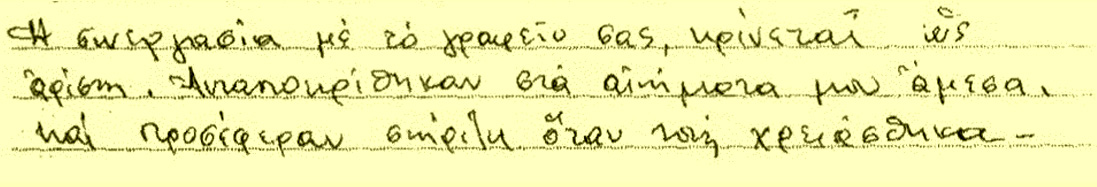 Ἡ συνεργασία μέ τό γραφεῖο σας, κρίνεται ὡς
ἄριστη. Ἀνταποκρίθηκαν στά αἰτήματα μου ἄμεσα,
καί προσέφεραν στήριξη ὅταν τούς χρειάσθηκα -